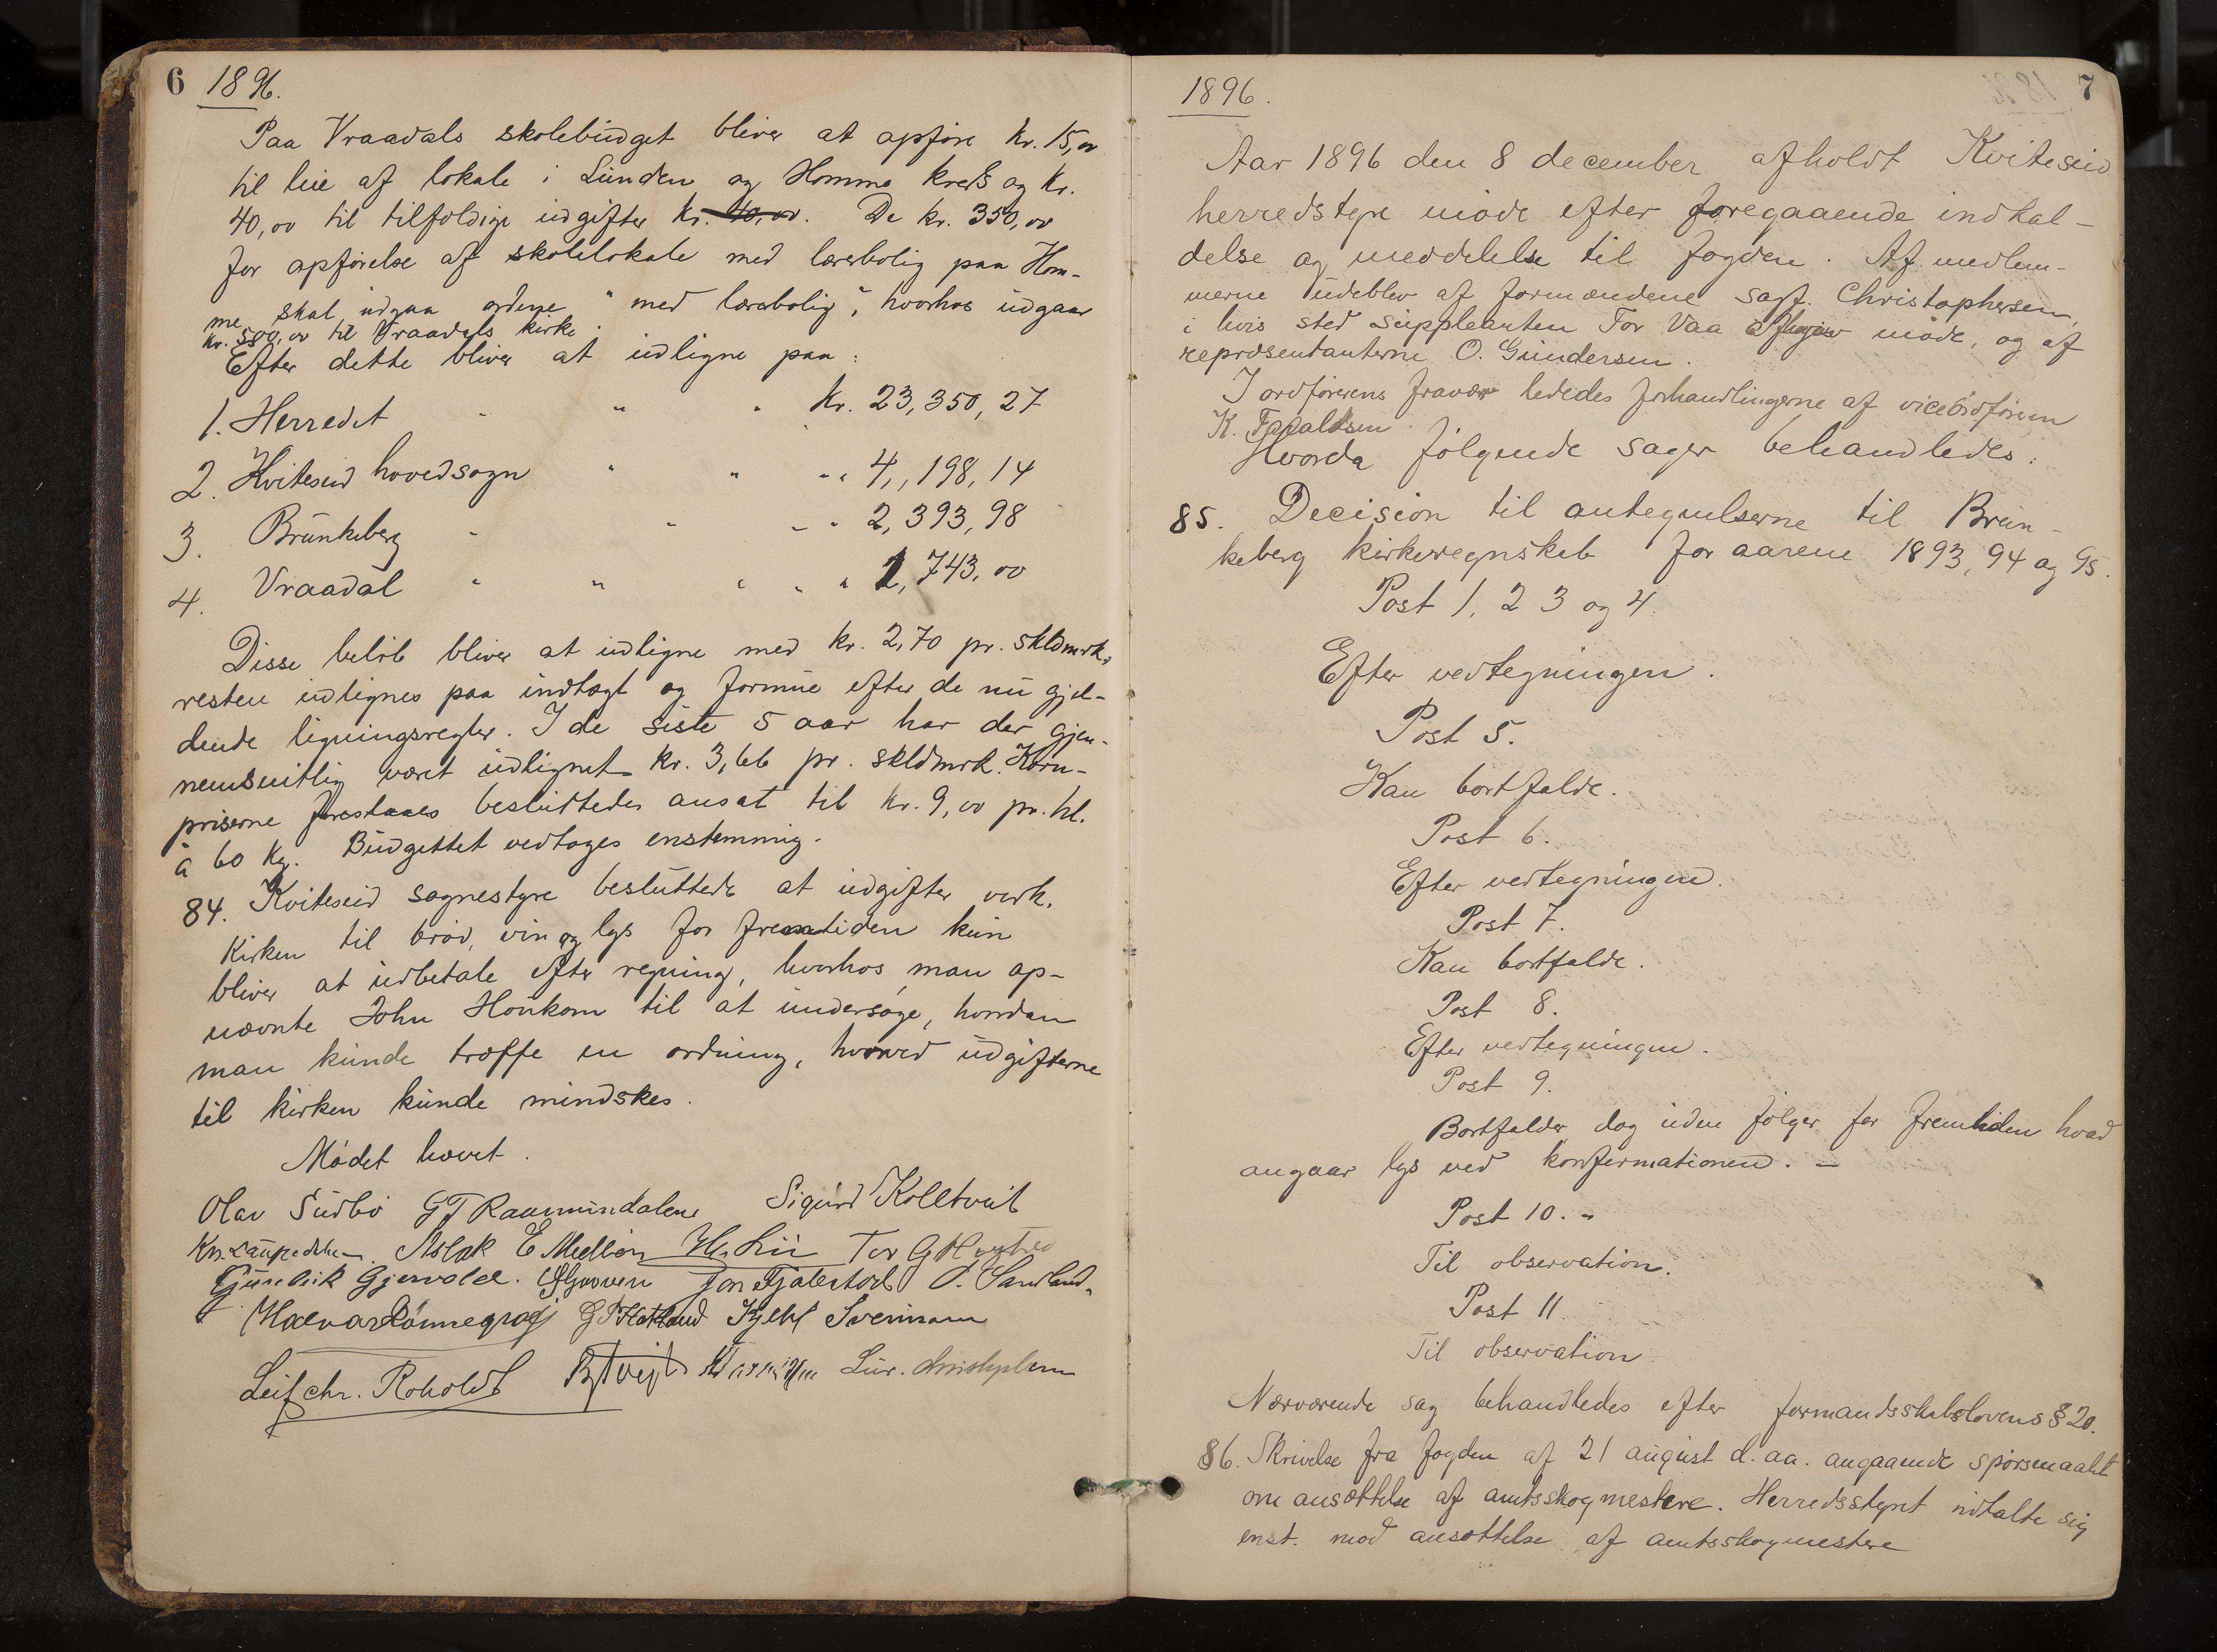 6 1896.
Paa Vraadals skolebudget bliver at opføre kr. 15,00
til leie af lokale i Lunden og Homme kreds og kr.
40,00 til tilfældige udgifter kr. 40,00. De kr. 350,00
for opførelse af skolelokale med lærerbolig paa Hom-
me skal udgaa ordene "med lærerbolig", hvorhos udgaar
kr. 500,00 til Vraadals kirke.
Efter dette bliver at udligne paa:
1. Herredet " " " kr. 23,350,27
2. Kviteseid hovedsogn " " " " 4,198,14
3. Brunkeberg " " " " 2,393,98
4. Vraadal " " " " " 1,743,00
Disse beløb bliver at udligne med kr. 2,70 pr. skldmrk,
resten udlignes paa indtægt og formue efter de nu gjel-
dende ligningsregler. I de siste 5 aar har der gjen-
nemsnitlig været udlignet kr. 3,66 pr. skldmrk. Korn-
priserne besluttedes ansat til kr. 9,00 pr. hl.
à 60 kg. Budgettet vedtoges enstemmig.
84. Kviteseid sognestyre besluttede at udgifter vedk.
kirken til brød, vin og lys for fremtiden kun
bliver at udbetale efter regning, hvorhos man op-
nævnte John Houkom til at undersøge, hvordan
man kunde træffe en ordning, hvorved udgifterne
til kirken kunde mindskes.
Mødet hævet.
Olav Sudbø G T Raumundalene Sigurd Kolltveit
Aslak E Midbøn H. Lii Tor G
Gunleik Gjervold. Jon Fjalestad O. Sandland.
Halvar Lønnegrav G Hatland Kjetil Sveinson
Leif chr. Roholdt
1896. 7
Aar 1896 den 8 december afholdt Kviteseid
herredstyre møde efter foregaaende indkal-
delse og meddelelse til fogden. Af medlem-
merne udeblev af formændene sagf. Christophersen,
i hvis sted suppleanten Tor Vaa møde, og af
repræsentanterne O. Gundersen.
I ordførerens fravær lededes forhandlingerne af viceordførerem
K. Taraldsen.
Hvorda følgende sager behandledes:
85. Decision til antegnelserne til Brun-
keberg kirkeregnskab for aarene 1893, 94 og 95.
Post 1, 2 3 og 4.
Efter vedtegningen.
Post 5.
Kan bortfalde.
Post 6.
Efter vedtegningen.
Post 7.
Kan bortfalde.
Post 8.
Efter vedtegningen.
Post 9.
Bortfalder dog uden følger for fremtiden hvad
angaar lys ved konfirmationen. —
Post 10. -
Til observation.
Post 11
Til observation
Nærværende sag behandledes efter formandsskabslovens § 20.
86. Skrivelse fra fogden af 21 august d. aa. angaaende spørsmaalet
om ansættelse af amtsskogmestere. Herredsstyret udtalte sig
enst. mod ansættelse af amtsskogmestere